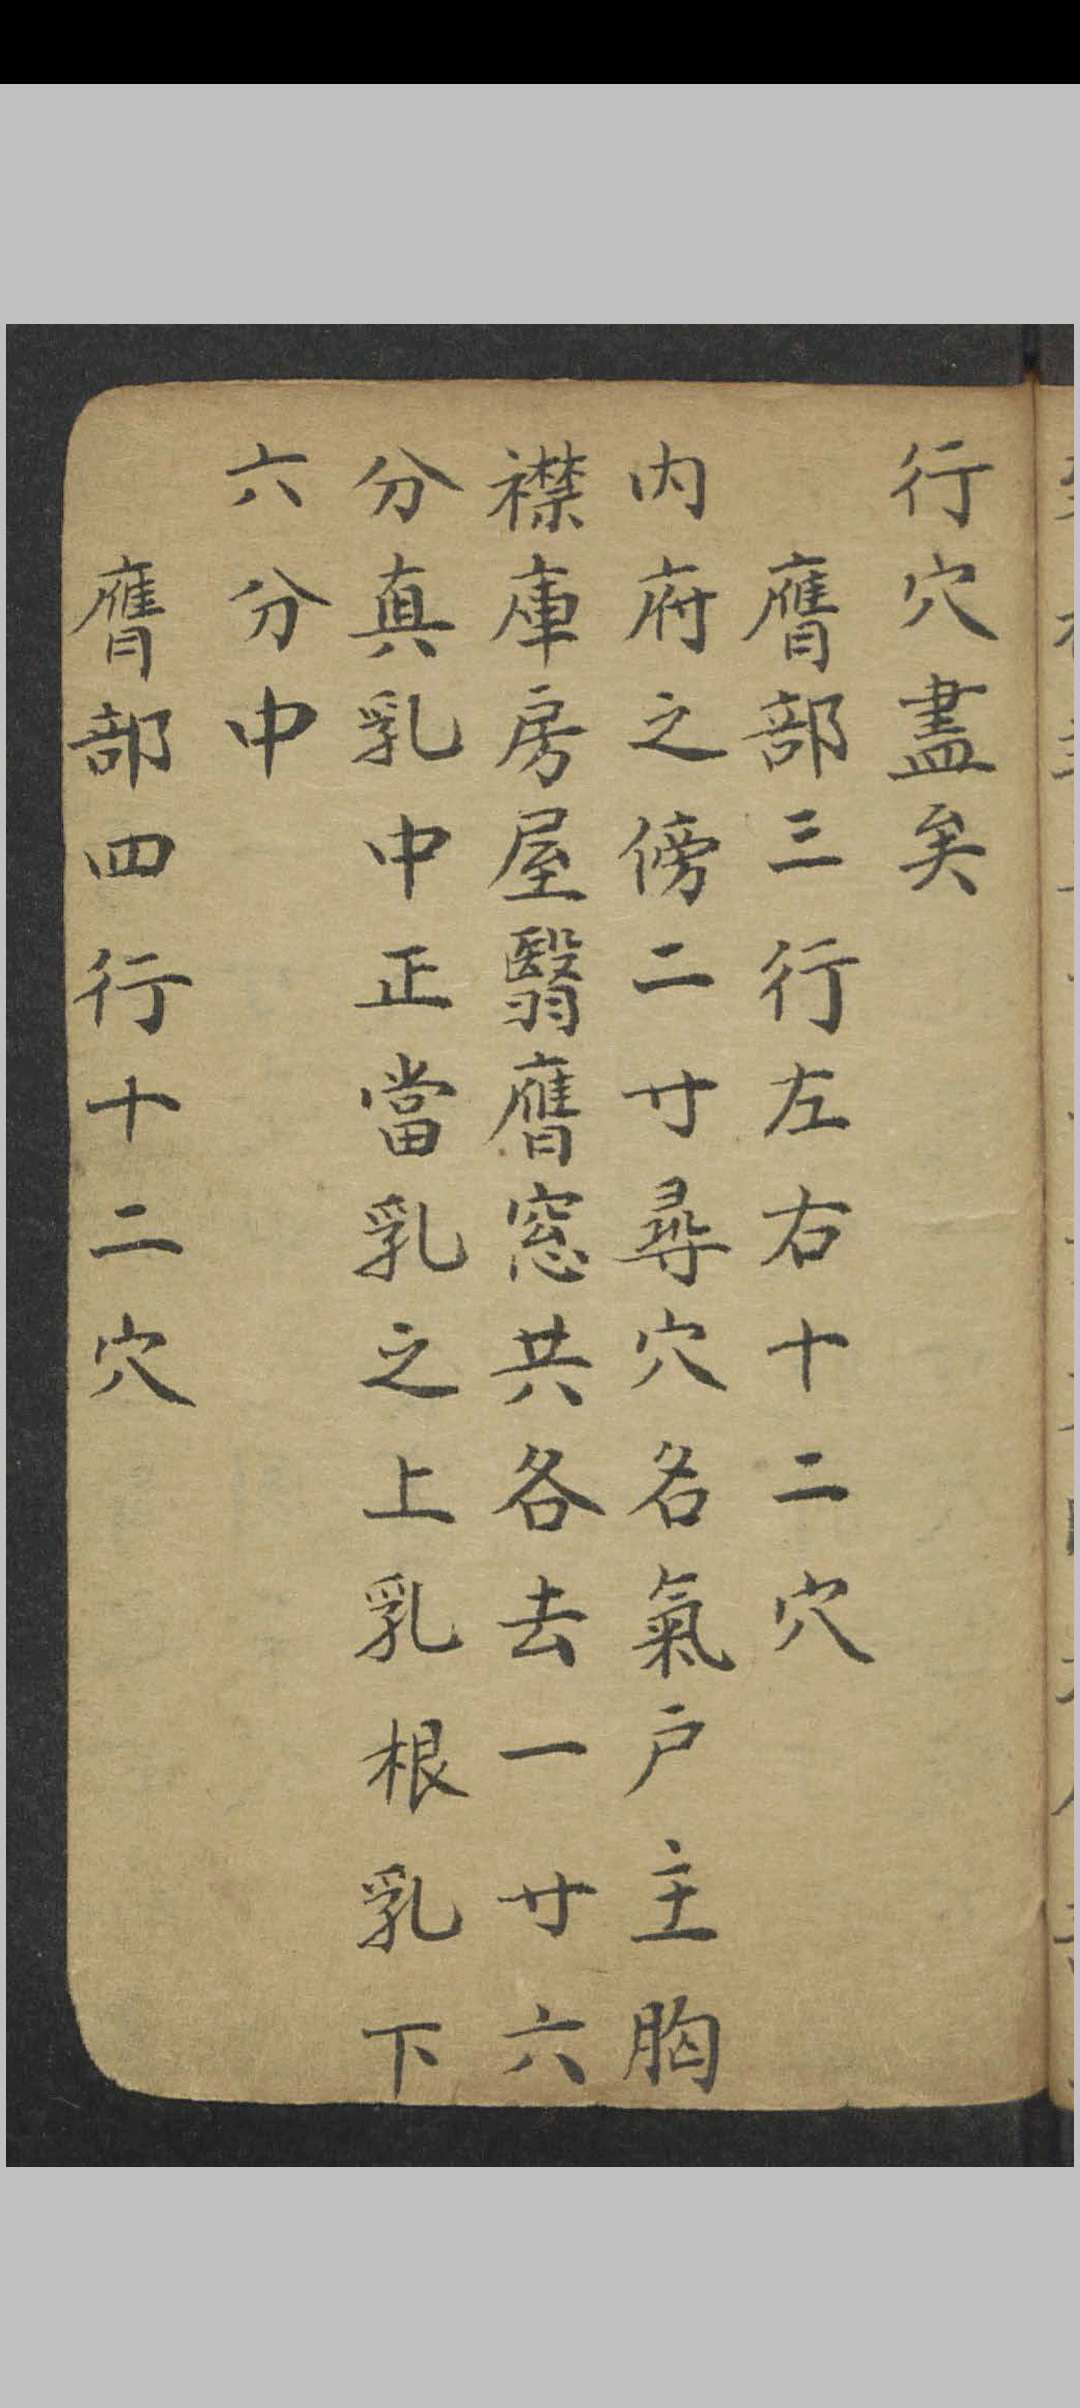 行穴盡矣
膺部三行左右十二穴
内府之傍二寸尋穴名氣户主胸
襟庫房屋翳膺窓共各去一寸六
分真乳中正當乳之上乳根乳下
六分中
膺部四行十二穴